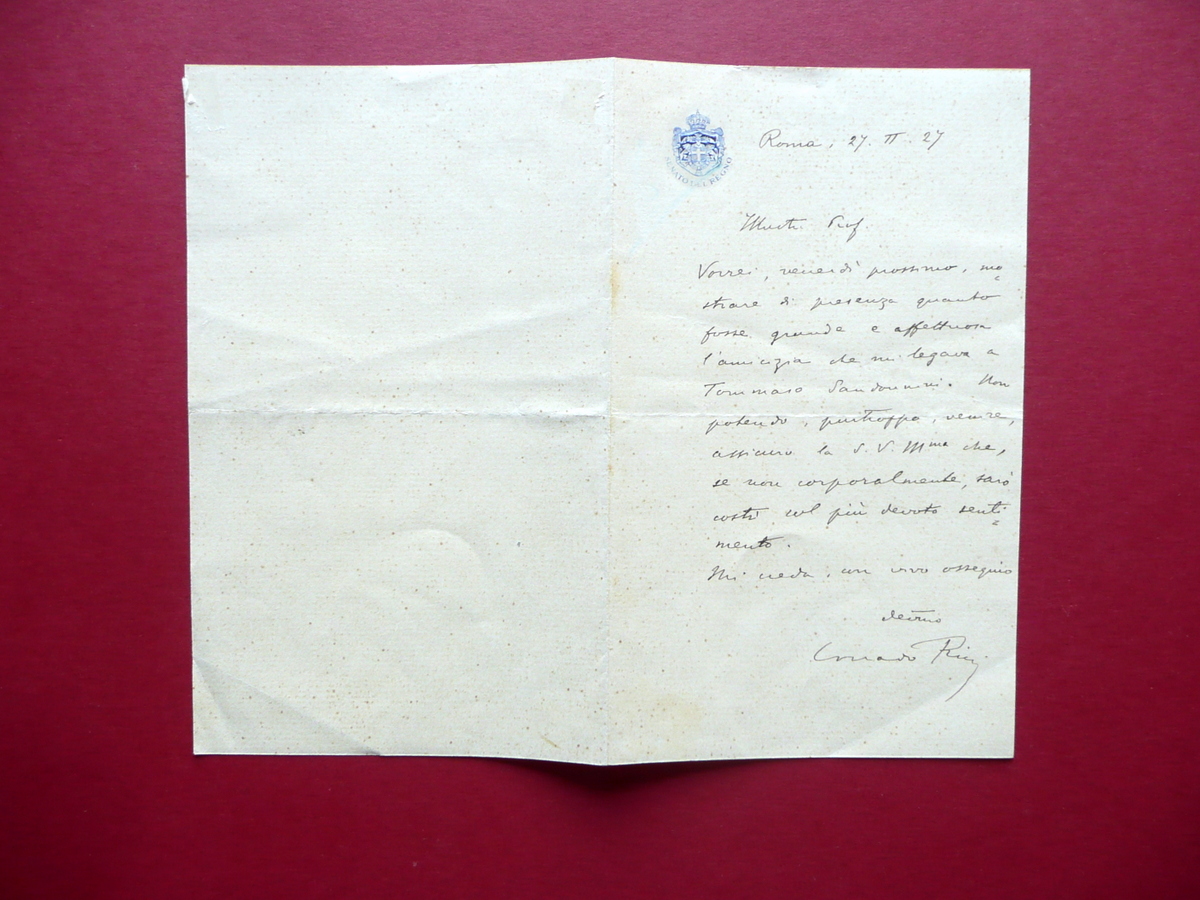 SENATO DEL REGNO
Roma, 27. II. 27
Illustr. Prof.
Vorrei, venerdì prossimo, mo=
strare di presenza quanto
fosse grande e affettuosa
l'amicizia che mi legava a
Tommaso Sandonnini. Non
potendo, purtroppo, venire,
assicuro la S. V. Ill.ma che,
se non corporalmente, sarò
costì col più devoto senti=
mento.
Mi creda, con vivo ossequio
dev.mo
Corrado Ricci